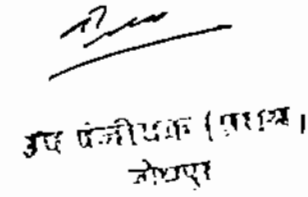 उप पंजीयक (प्रथम)
जोधपुर